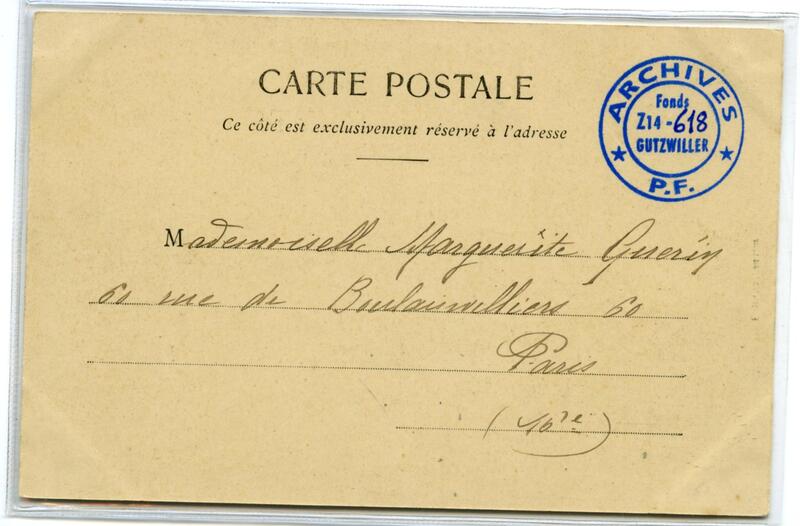 CARTE POSTALE
Ce côté est exclusivement réservé à l'adresse
ARCHIVES
Fonds
Z14-618
GUTZWILLER
P.F.
Mademoiselle Marguerite Guérin
60 rue de Boulainvilliers 60
Paris
(16e)